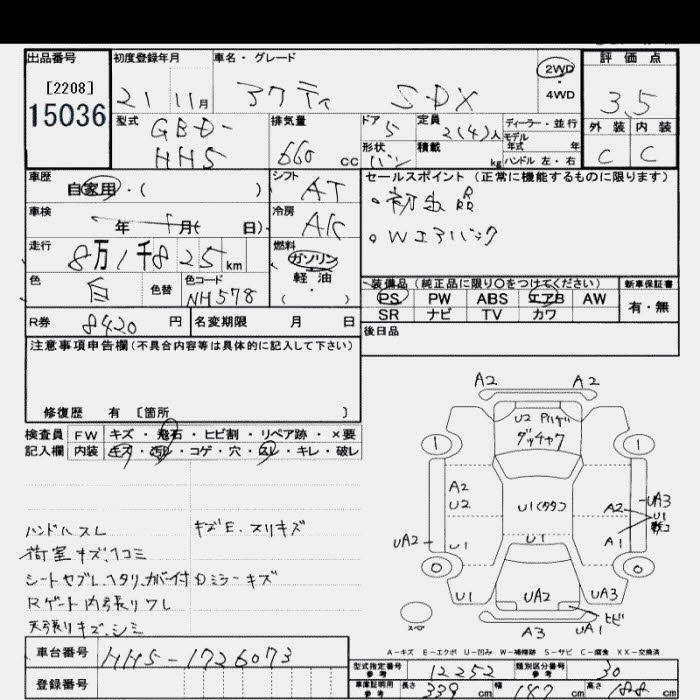 出品番号
[2208]
15036
初度登録年月
21 11月
車名・グレード
アクティ SDX
2WD
4WD
評価点
3.5
外装 内装
C C
型式
GBD-
HH5
排気量
660 cc
ドア 5
形状 バン
定員 2(4)人
積載 kg
ディーラー・並行
モデル
年式 年
ハンドル 左・右
車歴
自家用・( )
車検
年 月( 日)
走行
8万1千825 km
色 白
色替
色コード NH578
シフト AT
冷房 AC
燃料
ガソリン
軽油
・( )
セールスポイント (正常に機能するものに限ります)
・初出品
・Wエアバック
装備品(純正品に限り○をつけてください)
PS PW ABS エアB AW
SR ナビ TV カワ
新車保証書
有・無
R券 8420 円
名変期限 月 日
後日品
注意事項申告欄(不具合内容等は具体的に記入して下さい)
修復歴 有 [箇所 ]
検査員 FW キズ・飛石・ヒビ割・リペア跡・×要
記入欄 内装 キズ・汚レ・コゲ・穴・スレ・キレ・破レ
ハンドルスレ キズE.スリキズ
荷室キズ.凹コミ
シートセブレ.ヘタリ.カバー付 Dミラーキズ
Rゲート内張りワレ
天張りキズ.シミ
A2 A2
U2
ダッチャク
1 1
A2
U2
U1
A2
UA3
U1
UA2
U1
U1
A1
0 0
U1
UA2
UA3
ヒビ
スペア
A3
UA1
A-キズ E-エクボ U-凹み W-補修跡 S-サビ C-腐食 XX-交換済
車台番号 HH5-1726073
登録番号
型式指定番号
参考
12252
類別区分番号
参考
30
車庫証明用
参考
長さ 339 cm 幅 187 cm 高さ 188 cm